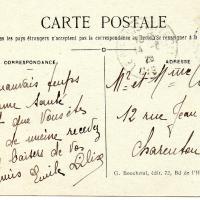 CARTE POSTALE
les pays étrangers n'acceptent pas la correspondance au recto. Se renseigner à la
CORRESPONDANCE
ADRESSE
mauvais temps
santé
que vous êtes
de même recevez
baisers de vos
amis Emile Lilise
Mr et Mme
12 rue Jean
Charenton
G. Bouchetal, édit. 72, Bd de l'H